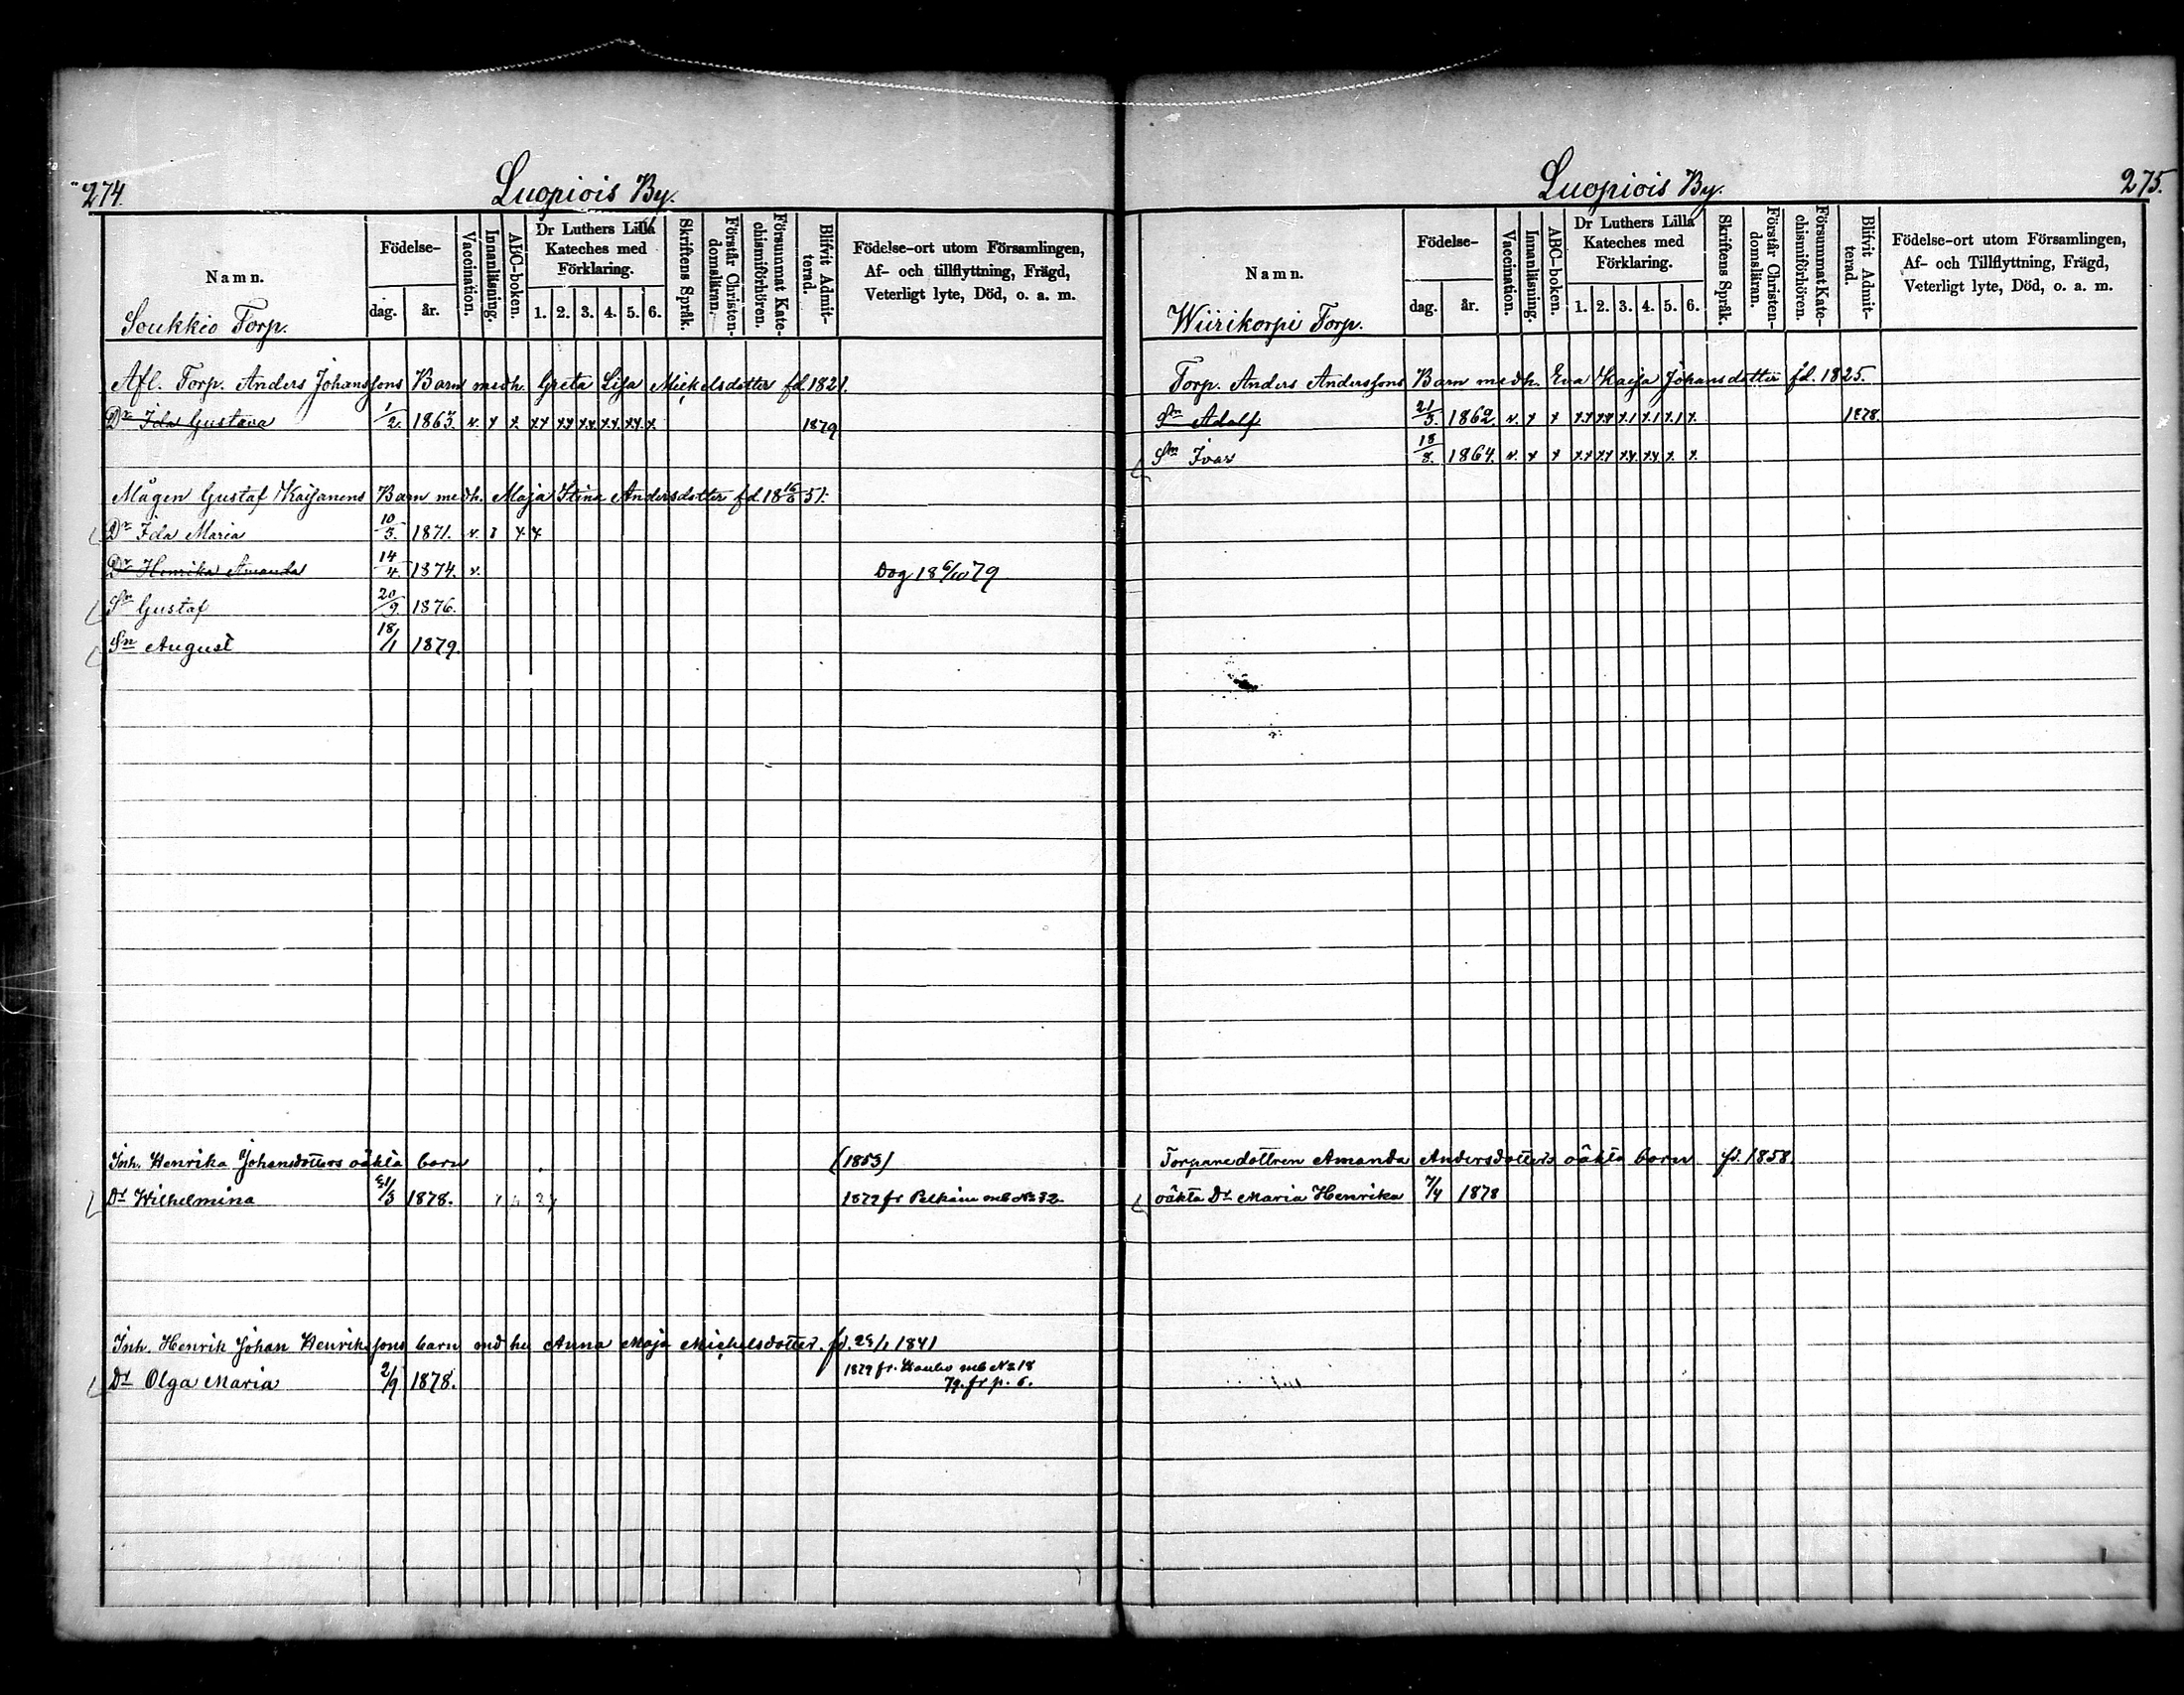 274.
Luopiois By.
Namn.
Födelse-
dag.
år.
Vaccination.
Innanläsning.
ABC-boken.
Dr Luthers Lilla
Kateches med
Förklaring.
1. 2. 3. 4. 5. 6.
Skriftens Språk.
Förstår Christen-
domsläran.
Försummat Kate-
chismiförhören.
Blifvit Admit-
terad.
Födelse-ort utom Församlingen,
Af- och tillflyttning, Frägd,
Veterligt lyte, Död, o. a. m.
Soukkio Torp.
Afl. Torp. Anders Johanssons Barn medh. Greta Lisa Mickelsdotter fd. 1821.
Dr Ida Gustava 1/2. 1863. 1879
Mågen Gustaf Kaisanens Barn medh. Maja Stina Andersdotter fd. 18 51.
Dr Ida Maria 10/5. 1871.
Dr Henrika Amanda 14/4. 1874. Dog 18 6/10 79
Sn Gustaf 20/9. 1876.
Sn August 18/1 1879.
Inh. Henrika Johansdotters oäkta barn (1853)
Dr Wilhelmina 31/3 1878. 1879 fr Pelkäne mb No 32.
Inh. Henrik Johan Henrikssons barn med hu Anna Maja Michelsdotter. fd. 1841
Dr Olga Maria 2/9 1878. 1879 fr. Hauho mb No 18
79. fr p. 6.
275.
Luopiois By.
Namn.
Födelse-
dag.
år.
Vaccination.
Innanläsning.
ABC-boken.
Dr Luthers Lilla
Kateches med
Förklaring.
1. 2. 3. 4. 5. 6.
Skriftens Språk.
Förstår Christen-
domsläran.
Försummat Kate-
chismiförhören.
Blifvit Admit-
terad.
Födelse-ort utom Församlingen,
Af- och Tillflyttning, Frägd,
Veterligt lyte, Död, o. a. m.
Wiirikorpi Torp.
Torp. Anders Anderssons Barn medh. Eva Kaisa Johansdotter fd. 1825.
Sn Adolf 21/3. 1862. 1878.
Sn Ivar 18/8. 1864.
Torparedottren Amanda Andersdotters oäkta barn fd. 1858.
oäkta Dr Maria Henrika 7/4 1878